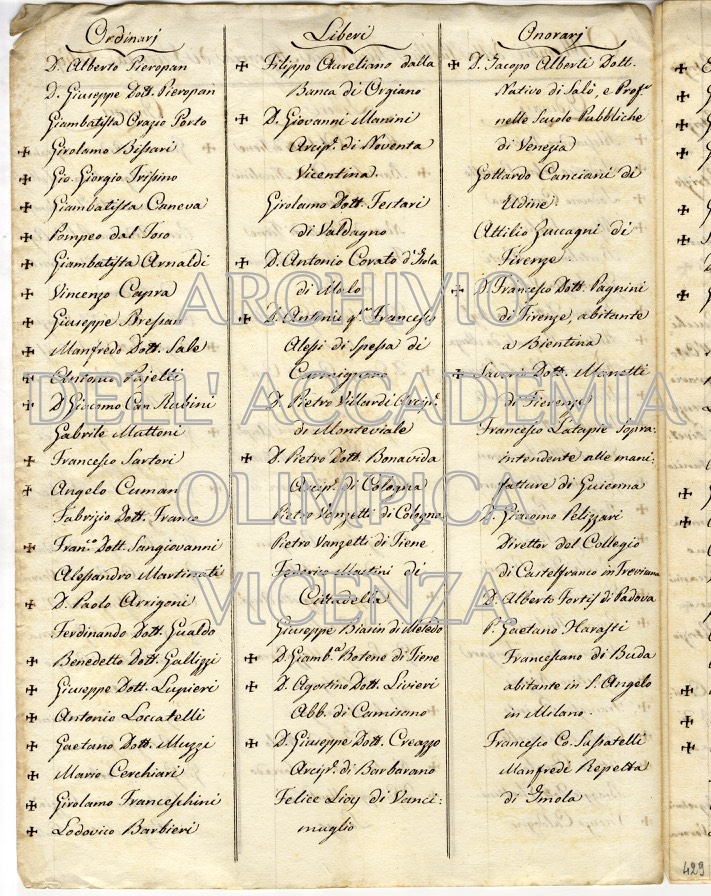 Ordinarj
D. Alberto Pieropan
D. Giuseppe Dott. Pieropan
Giambatista Orazio Porto
✠ Girolamo Bissari
✠ Gio. Giorgio Trissino
✠ Giambatista Caneva
✠ Pompeo dal Toso
✠ Giambatista Arnaldi
✠ Vincenzo Capra
✠ Giuseppe Bressan
✠ Manfredo Dott. Sale
✠ Antonio Pajelli
✠ D Giacomo Can. Rubini
Gabrile Muttoni
✠ Francesco Sartori
✠ Angelo Cuman
Fabrizio Dott. Franco
✠ Fran.co Dott. Sangiovanni
Alessandro Martinati
✠ D. Paolo Arrigoni
Ferdinando Dott. Gualdo
✠ Benedetto Dott. Gallizzi
✠ Giuseppe Dott. Lupieri
✠ Antonio Loccatelli
✠ Gaetano Dott. Muzzi
✠ Mario Cerchiari
✠ Girolamo Franceschini
✠ Lodovico Barbieri
Liberi
✠ Filippo Aureliano dalla
Banca di Orgiano
✠ D. Giovanni Manini
Arcip. di Noventa
Vicentina.
Girolamo Dott. Festari
di Valdagno
✠ D. Antonio Corato d'Isola
di Malo
✠ D. Antonio q.m Francesco
Alessi di Spessa di
Carmignano
D. Pietro Villardi Arcip.
di Monteviale
✠ D. Pietro Dott. Bonavida
Arcip. di Cologna
Pietro Vanzetti di Cologna
Pietro Vanzetti di Tiene
Federico Mastini di
Cittadella
Giuseppe Biasin di Meledo
✠ D. Giamb.a Botene di Tiene
✠ D. Agostino Dott. Livieri
Abb. di Camisano
✠ D. Giuseppe Dott. Creazzo
Arcip. di Barbarano
Felice Lioy di Vanci:
muglio
Onorarj
✠ D. Jacopo Alberti Dott.
Nativo di Salò, e Prof.r
nelle Scuole Pubbliche
di Venezia
Gottardo Canciani di
Udine
Attilio Zuccagni di
Firenze.
✠ D. Francesco Dott. Pagnini
di Firenze, abitante
a Bientina
✠ Saverio Dott. Manetti
di Firenze
Francesco Latapie Sopra:
intendente alle mani:
fatture di Guienna
D. Giacomo Pelizzari
Direttor del Collegio
di Castelfranco in Trevisana
D. Alberto Fortis di Padova
P. Gaetano Harasti
Francescano di Buda
abitante in S. Angelo
in Milano.
Francesco Co. Sassatelli
Manfredi Repetta
di Imola
429
ARCHIVIO
DELL'ACCADEMIA
OLIMPICA
VICENZA